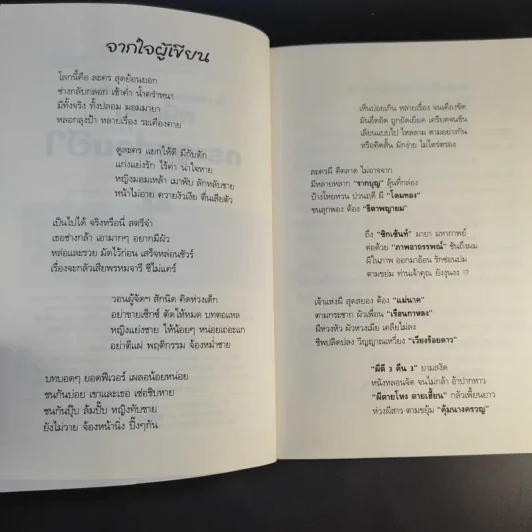 จากใจผู้เขียน
โลกนี้คือ ละคร สุดย้อนยอก
ช่างกลับกลอก เช้าค่ำ น้ำคร่ำหนา
มีทั้งจริง ทั้งปลอม มอมมายา
หลอกลุงป้า หลายเรื่อง ระเคืองคาย
ดูละคร แยกให้ดี มีกับดัก
แก่งแย่งรัก ไร้ค่า น่าใจหาย
หญิงมอมเหล้า เมาพับ ลักหลับชาย
หน้าไม่อาย ควายงัวเงีย ตื่นเสียตัว
เป็นไปได้ จริงหรือนี่ สตรีจ๋า
เธอช่างกล้า เอามากๆ อยากมีผัว
หล่อและรวย มัดไว้ก่อน เสร็จหล่อนชัวร์
เรื่องจะกลัวเสียพรหมจารี ชีไม่แคร์
วอนผู้จัดฯ สักนิด คิดห่วงเด็ก
อย่าขายเซ็กซ์ ตัดให้หมด บทตอแหล
หญิงแย่งชาย ให้น้อยๆ หน่อยเถอะแก
อย่าตีแผ่ พฤติกรรม จ้องหม่ำชาย
บทบอดๆ ยอดฟีเวอร์ เผลอน้อยหน่อย
ชนกันบ่อย เขาและเธอ เซ่อชิบหาย
ชนกันปุ๊บ ล้มปั๊บ หญิงทับชาย
ยังไม่วาย จ้องหน้านิ่ง ปิ๊งๆกัน
เห็นบ่อยเกิน หลายเรื่อง จนเคืองขัด
มันอึดอัด ถูกยัดเยียด เครียดจนขัน
เลียนแบบไป ไหลลาม ตามอย่างกัน
หรือคิดสั้น มักง่าย ไม่ไตร่ตรอง
ละครผี ดีตลาด ไม่อาจจาก
มีหลายหลาก "รากบุญ" ลุ้นที่กล่อง
บ้างโหยหวน ป่วนฤดี ผี "โดมทอง"
ชนลุกพอง ต้อง "ธิดาพญายม"
ถึง "ซิกเซ้นท์" มายา มหากาพย์
ต่อด้วย "ภาพอาถรรพณ์" ชันถึงผม
ผีในภาพ ออกมาอ้อน รักซ่อนปม
ตามขย่ม ท่านเจ้าคุณ ยังงูนงง !?
เจ้าแห่งผี สุดสยอง ต้อง "แม่นาค"
ตามกระชาก ผัวเพื่อน "เรือนกาหลง"
ผีหวงหัว ผัวหวงเมีย เคลียไม่ลง
ชีพปลิดปลง วิญญาณเหวี่ยง "เวียงร้อยดาว"
"ผีตี 3 คืน 3" ยามสงัด
หนังหลอนจัด จนไม่กล้า อ้าปากหาว
"ผีตายโหง ตายเฮี้ยน" กลัวเพี้ยนยาว
ห่วงผีสาว ตามขยุ้ม "คุ้มนางครวญ"